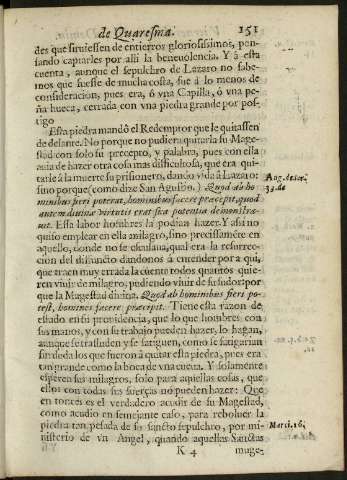 de Quaresma. 151
des que siruiessen de entierros gloriosissimos, pen-
sando captarles por alli la beneuolencia. Y à esta
cuenta, aunque el sepulchro de Lazaro no sabe-
mos que fuesse de mucha costa, fue à lo menos de
consideracion, pues era, ò vna Capilla, ò vna pe-
ña hueca, cerrada con vna piedra grande por pos-
tigo
Esta piedra mandò el Redemptor que le quitassen
de delante. No porque no pudiera quitarla su Mage-
stad con solo su precepto, y palabra, pues con ella
auia de hazer otra cosa mas dificultosa, que era qui-
tarle à la muerte su prisionero, dando vida à Lazaro:
sino porque (como dize San Agustin.) Quod ab ho
minibus fieri poterat, hominibus facere præcepit, quod
autem diuinæ virtutis erat sua potentia demonstra-
uit. Essa labor hombres la podian hazer. Y assi no
quiso emplear en ella milagro, sino precissamente en
aquello, donde no se escusaua, qual era la resurrec-
cion del difuncto dandonos à entender por aqui,
que traen muy errada la cuenta todos quantos quie-
ren viuir de milagro, pudiendo viuir de su sudor: por
que la Magestad diuina. Quod ab hominibus fieri po-
test, homines facere præcepit. Tiene esta razon de
estado en su prouidencia, que lo que hombres con
sus manos, y con su trabajo pueden hazer, lo hagan,
aunque se trasuden y se fatiguen, como se fatigarian
sin duda los que fueron à quitar esta piedra, pues era
tan grande como la boca de vna cueua. Y solamente
esperen sus milagros, solo para aquellas cosas, que
ellos con todas sus fuerças no pueden hazer: Que
en torces es el verdadero acudir de su Magestad,
como acudio en semejante caso, para reboluer la
piedra tan pesada de su sancto sepulchro, por mi-
nisterio de vn Angel, quando aquellas Sanctas
K 4 muge-
Marci. 16.